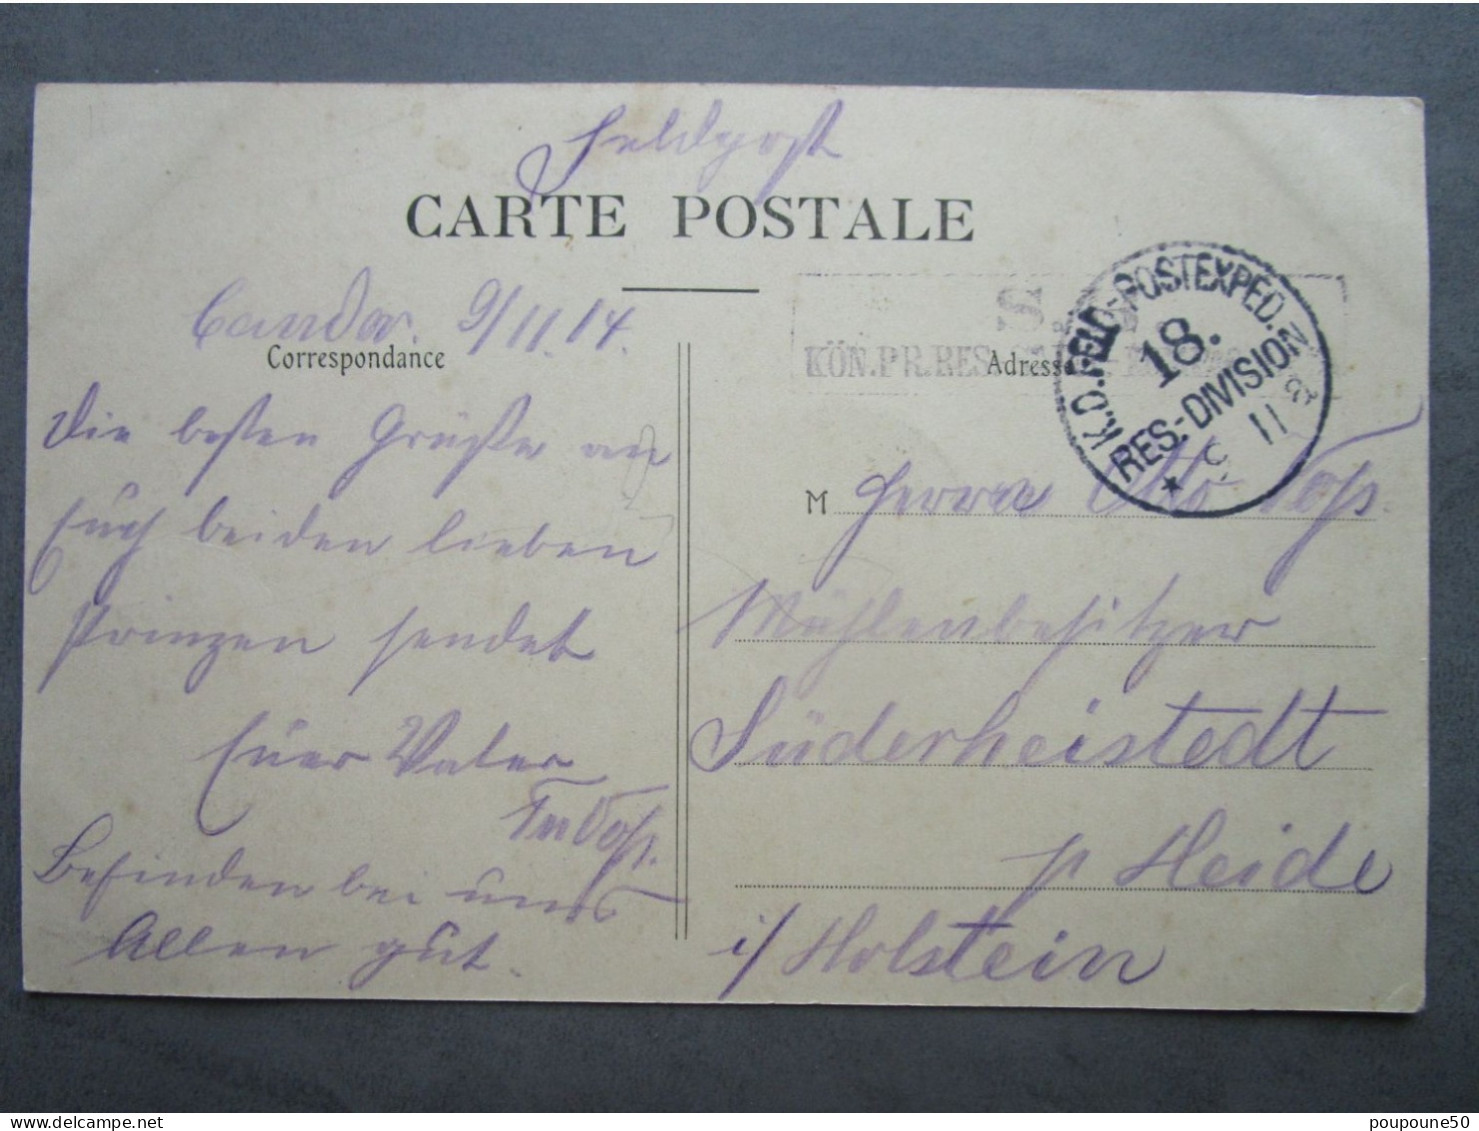 Feldpost
CARTE POSTALE
Candor. 9/11.14.
Correspondance
Die besten Grüße an
Euch beiden lieben
Prinzen sendet
Euer Vater
Voß.
Befinden bei uns
Allen gut.
S.
KÖN.PR.RES.
Adresse
K.D.FELD-POSTEXPED.
18.
RES.-DIVISION
11
M Herrn Otto Voß.
Mühlenbesitzer
Süderheistedt
p Heide
i/Holstein
poupoune50